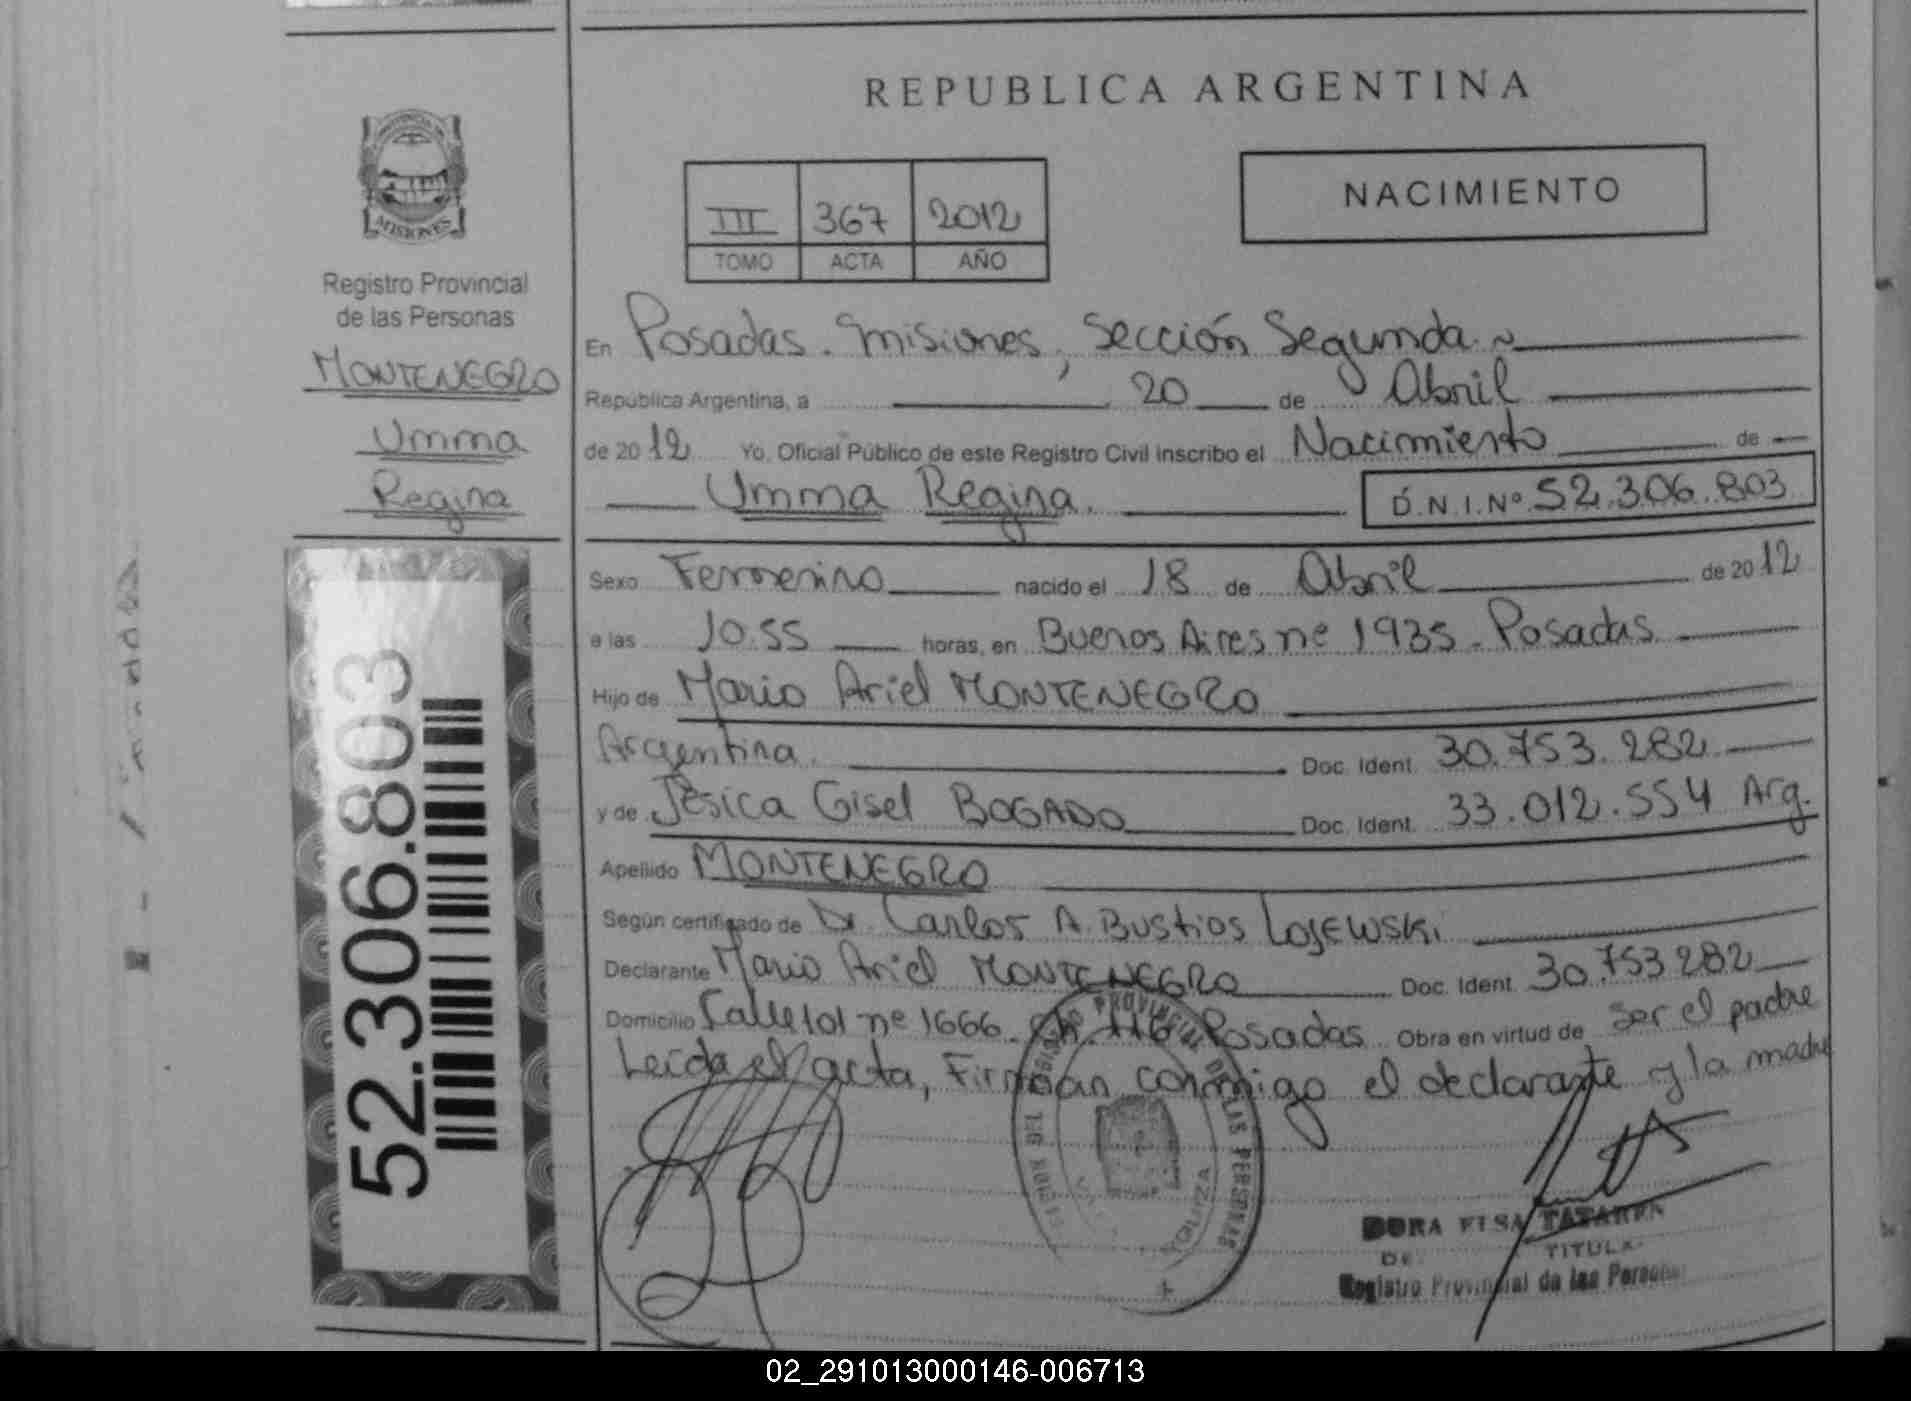 REPUBLICA ARGENTINA
NACIMIENTO
III 367 2012
TOMO ACTA AÑO
PROVINCIA DE
MISIONES
Registro Provincial
de las Personas
MONTENEGRO
Umma
Regina
52.306.803
En Posadas. Misiones, Sección Segunda
República Argentina, a 20 de Abril
de 2012 Yo, Oficial Público de este Registro Civil inscribo el Nacimiento de
Umma Regina. D.N.I.Nº 52.306.803
Sexo Femenino nacido el 18 de Abril de 2012
a las 10.55 horas, en Buenos Aires nº 1935. Posadas
Hijo de Mario Ariel MONTENEGRO
Argentina. Doc. Ident. 30.753.282
y de Jésica Gisel BOGADO Doc. Ident. 33.012.554 Arg.
Apellido MONTENEGRO
Según certificado de Dr. Carlos A. Bustios Lojewski
Declarante Mario Ariel MONTENEGRO Doc. Ident. 30.753.282
Domicilio Calle 101 nº 1666. Ch. 116 Posadas Obra en virtud de ser el padre
Leída el acta, Firman conmigo el declarante y la madre
REGISTRO PROVINCIAL DE LAS PERSONAS
DORA ELSA
TITULAR
Registro Provincial de las Personas
02_291013000146-006713